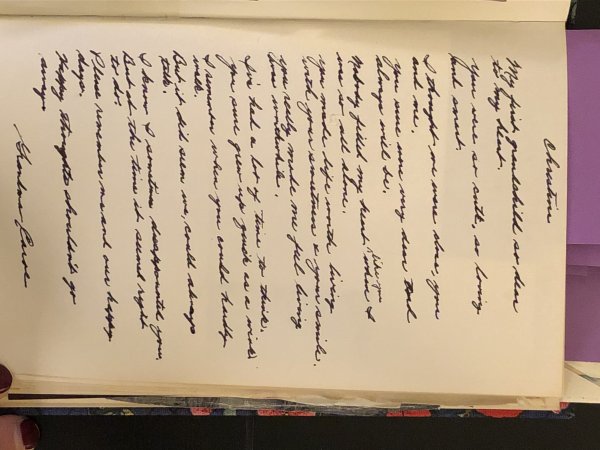 Christine
My first grandchild so dear
to my heart.
You were so cute, so loving
and smart.
I thought we were close, you
and me.
You were ever my dear and
always will be.
Nobody filled my heart like you when I
was so all alone.
You made life worth living
with your sometimes a grin smile.
You really made me feel living
was worthwhile.
I've had a lot of time to think.
You sure grew up quick as a wink.
I remember when you could hardly
walk.
But it did seem we could always
talk.
I know I sometimes disappointed you,
But at the time it seemed right
to do.
Please remember me and our happy
days.
Happy thoughts shouldn't go
away.
Grandma